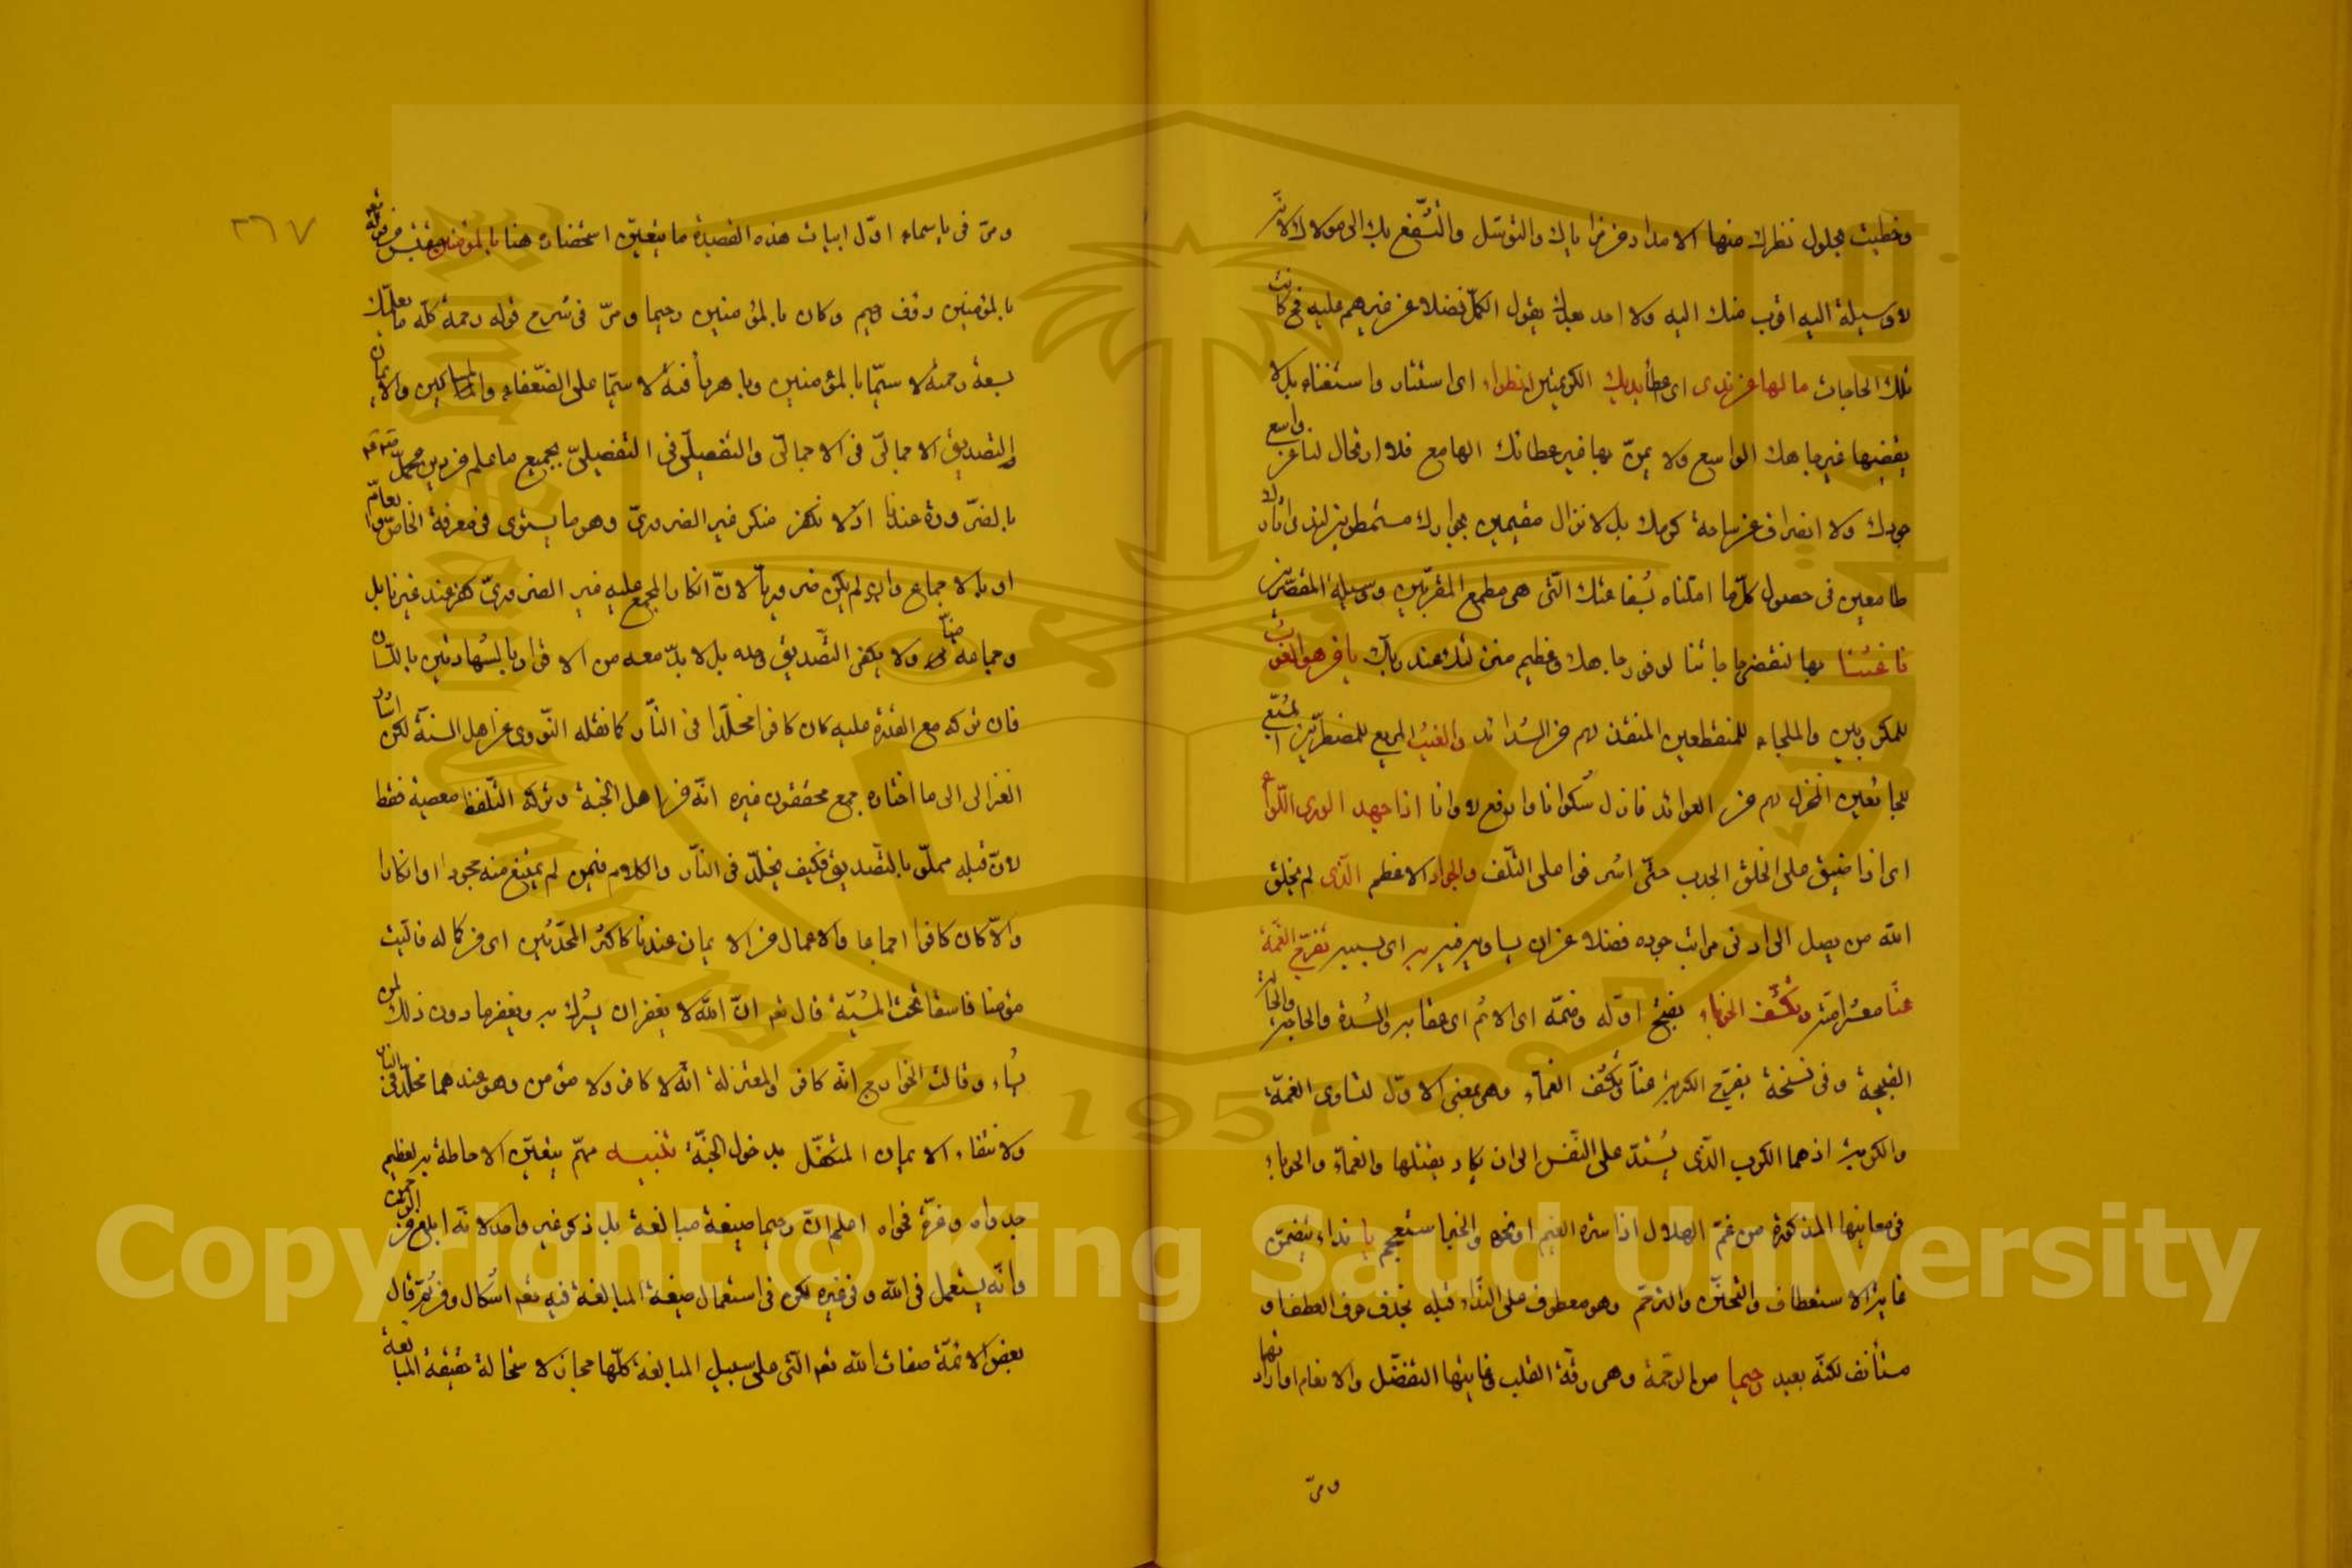 وخطيت بحلول نظرك منها الامداد من مزاياك والتوسّل والتشفع بك الى مولاك لانّه
لا وسيلة اليه اقرب منك اليه ولا احد بعدك يقول الكمّل فضلا عن غيرهم عليه فحيث كانت
تلك الحاجات ما لها عن ندى اى عطا يديك الكريمتين انطواء اى استتار واستغناء بل لا
يقضيها غير جاهك الواسع ولا يمنّ بها غير عطائك الهامع فلا ارتحال لنا عن واسع
جودك ولا انصراف عن ساحة كرمك بل لا نزال مقيمين بجوارك مستمطرين لندى
طامعين فى حصول كلّ ما امّلناه بشفاعتك الّتى هى مطمع المقرّبين ووسيلة المقصّرين
فاغثنا بها لتقضى حاجاتنا لوفور جاهك وعظيم منزلتك عند ربّك يا من هو الغوث
للمكروبين والملجاء للمنقطعين المنقذ لهم من الشدائد والغيث المريع للمضطرّين
لجائعين لهم من العوائد فازل شكوانا وارفع لاوانا اذا جهد الورى اللّاواء
اى اذا ضيق على الخلق الجدب حتّى اشرفوا على التّلف والجواد الاعظم الّذى لم يخلق
الله من يصل الى ادنى مراتب جوده فضلا عن ان يساويه غيره به اى بسببه تفرّج الغمّة
عنّا معشر امّته وتكشف الحوباء بفتح اوّله وضمّه اى الاثم اى عقابه والشدة والحاجة والحالة
القبيحة وفى نسخة تفرّج الكربة عنّا وتكشف الغمّاء وهى بمعنى الاوّل لتساوى الغمّة
والكربة اذ هما الكرب الّذى يشتدّ على النّفس الى ان يكاد يقتلها والغمّاء والحوباء
فى معانيها المذكورة من غمّ الهلال اذا ستره الغيم او نحوه يا نداء يتضمّن
غاية الاستعطاف والتحنّن والترحّم وهو معطوف على النّداء قبله بحذف حرف العطف او
مستأنف لكنّه بعيد رحيما من الرحمة وهى رقّة القلب وغايتها التفضّل والانعام او ارادتها
ومرّ
٢٦٧
ومرّ فى يا سماء اوّل ابيات هذه القصيدة ما يتعيّن استحضاره هنا بالمؤمنين مقتبس من قوله تعم
بالمؤمنين رؤف رحيم وكان بالمؤمنين رحيما ومرّ فى شرح قوله رحمة كلّه ما يعلمك
بسعة رحمته لا سيّما بالمؤمنين وباهر رأفته لا سيّما على الضّعفاء والمساكين والايمان
التصديق الاجمالىّ فى الاجمالىّ والتفصيلىّ فى التفصيلىّ بجميع ما علم من دين محمّد صلعم
بالضّرورة عندنا اذ لا نكفر منكر غير الضرورىّ وهو ما يستوى فى معرفة الخاصّ والعامّ
او بالاجماع وان لم يكن ضروريّا لانّ انكار المجمع عليه غير الضرورىّ كفر عند غيرنا بل
وجماعة منّا ولا يكفى التّصديق وحده بل لا بدّ معه من الاقرار بالشهادتين باللّسان
فان تركه مع القدرة عليه كان كافرا مخلّدا فى النّار كما نقله النّووى عن اهل السنّة لكن اشار
الغزالى الى ما اختاره جمع محققون غيره انّه من اهل الجنة وتركه التّلفظ معصية فقط
لانّ قلبه مملوّ بالتّصديق فكيف يخلّد فى النّار والكلام فيمن لم يمتنع منه جحودا او انكارا
والّا كان كافرا اجماعا والاعمال من الايمان عندنا كاكثر المحدّثين اى من كماله فالميت
مؤمنا فاسقا تحت المشيّة قال تعم انّ الله لا يغفر ان يشرك به ويغفر ما دون ذلك لمن
يشاء وقالت الخوارج انّه كافر والمعتزلة انّه لا كافر ولا مؤمن وهو عندهما مخلّد فى النار
ولانتفاء الايمان المتكفّل بدخول الجنّة تنبيه مهمّ يتعيّن الاحاطة به لعظيم
جدواه وعزّة فحواه اعلم انّ رحيما صيغة مبالغة بل ذكر غير واحد انّه ابلغ من الرّحمن
وانّه يستعمل فى الله وفى غيره لكن فى استعمال صيغة المبالغة فيه تعم اشكال ومن ثمّ قال
بعض الائمّة صفات الله تعم الّتى على سبيل المبالغة كلّها مجاز لاستحالة حقيقة المبالغة
Copyright © King Saud University
King Saud University
1957